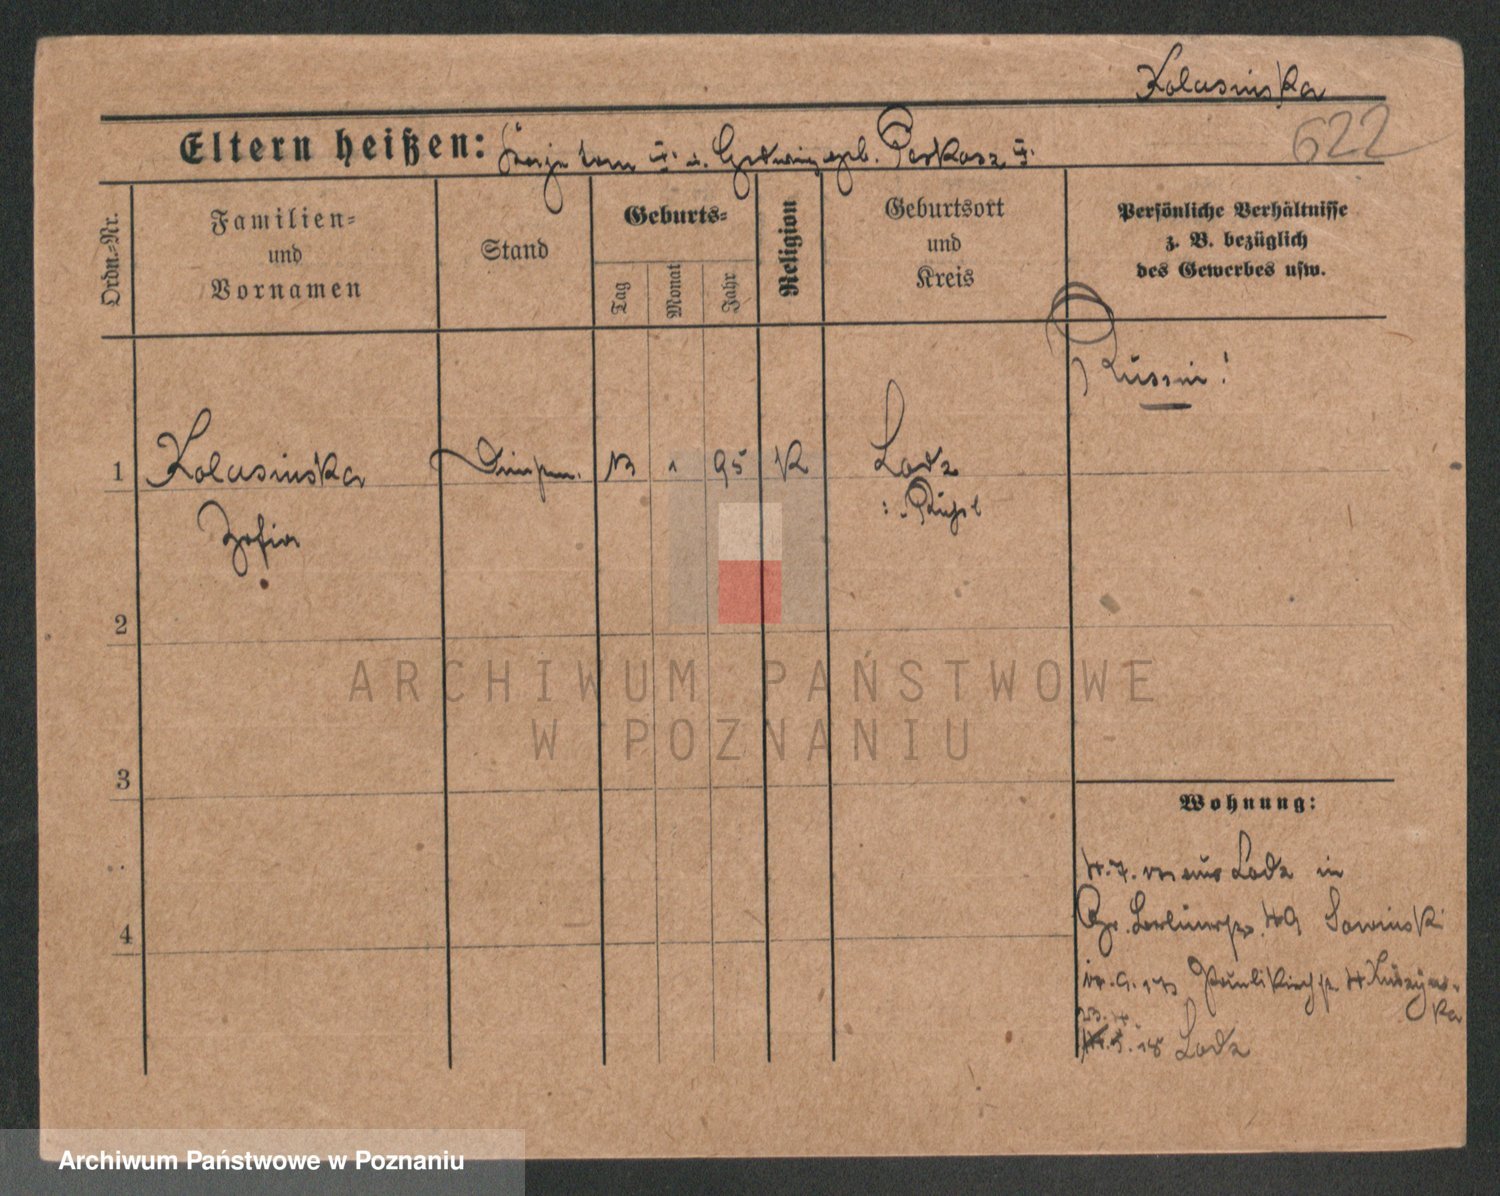 Kolasinska
622
Eltern heißen: u. Hedwig geb.
Ordn.-Nr.
Familien-
und
Vornamen
Stand
Geburts-
Tag
Monat
Jahr
Religion
Geburtsort
und
Kreis
Persönliche Verhältnisse
z. B. bezüglich
des Gewerbes usw.
Russin!
1 Kolasinska 13 1 95 K Lodz
Zofia
2
3
4
Wohnung:
aus Lodz in
Gr. Berlinerstr. Sawinski
Paulikirchstr.
18 Lodz
ARCHIWUM PAŃSTWOWE
W POZNANIU
Archiwum Państwowe w Poznaniu